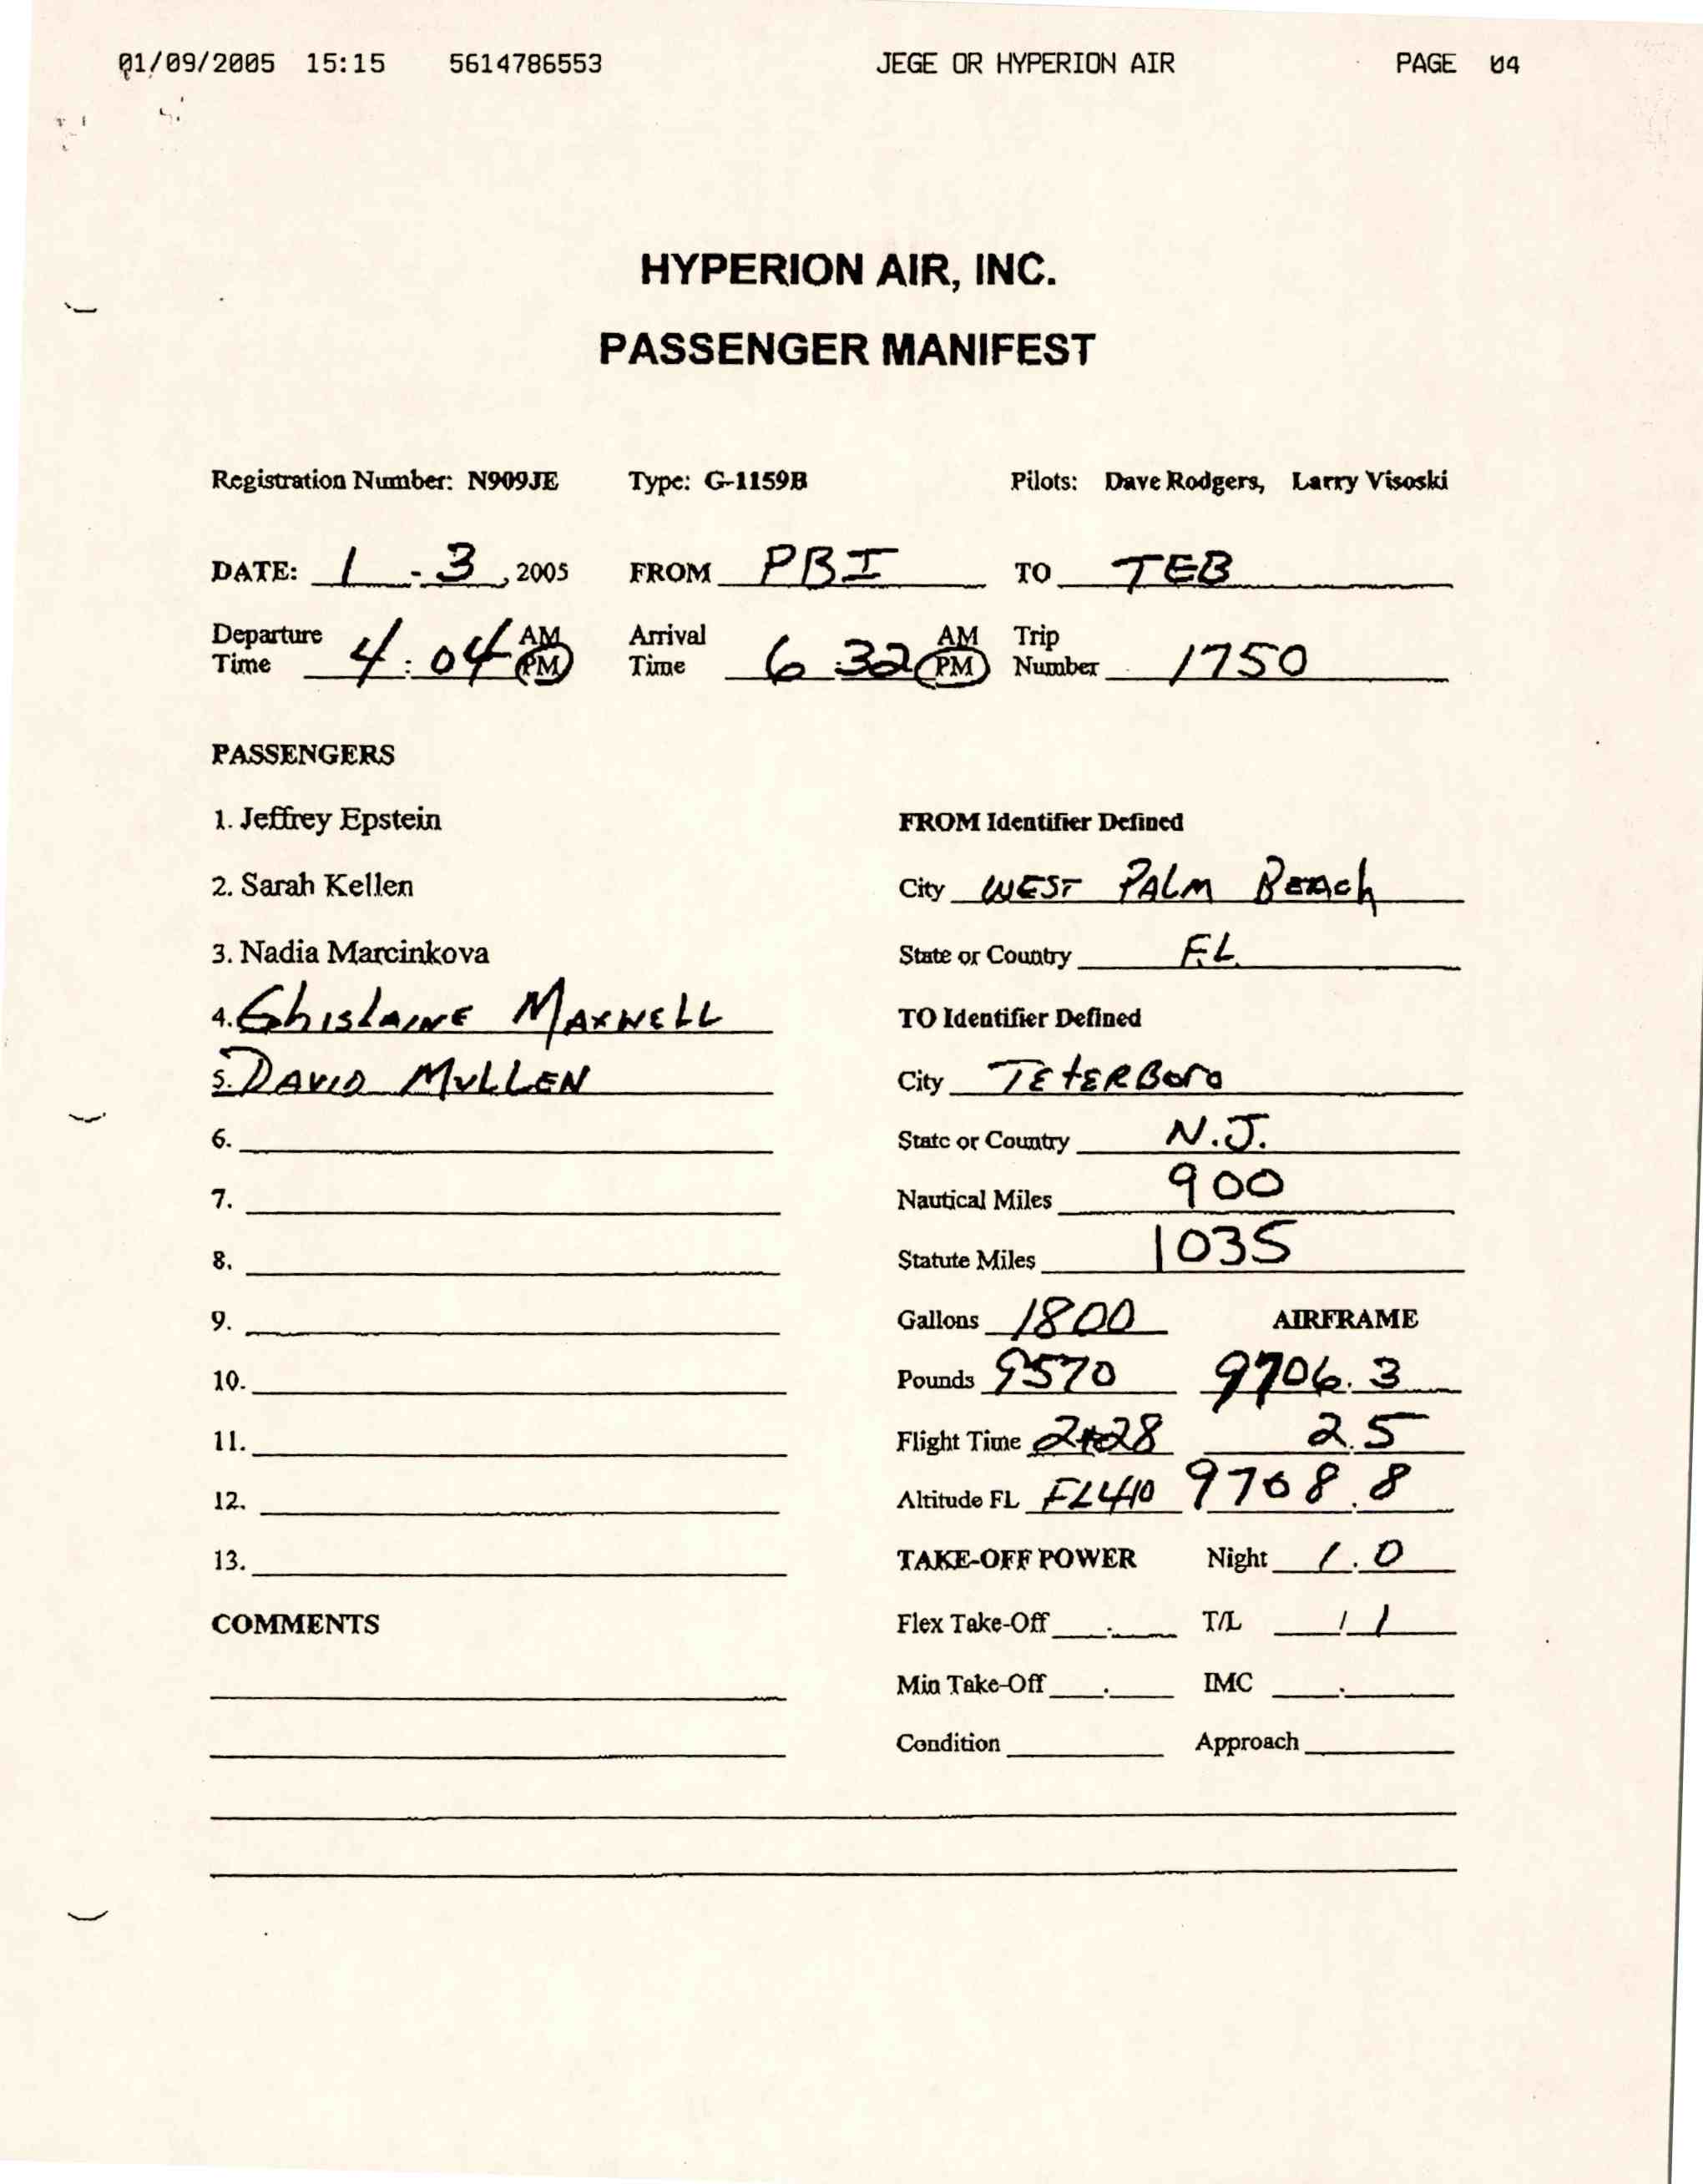 01/09/2005 15:15 5614786553 JEGE OR HYPERION AIR PAGE 04
HYPERION AIR, INC.
PASSENGER MANIFEST
Registration Number: N909JE Type: G-1159B Pilots: Dave Rodgers, Larry Visoski
DATE: 1 - 3, 2005 FROM PBI TO TEB
Departure Time 4:04 AM PM Arrival Time 6:32 AM PM Trip Number 1750
PASSENGERS
1. Jeffrey Epstein FROM Identifier Defined
2. Sarah Kellen City WEST PALM BEACh
3. Nadia Marcinkova State or Country FL
4. GhislAINE MAXWELL TO Identifier Defined
5. DAVID MULLEN City TEtERBoro
6. State or Country N.J.
7. Nautical Miles 900
8. Statute Miles 1035
9. Gallons 1800 AIRFRAME
10. Pounds 9570 9706.3
11. Flight Time 2+28 2.5
12. Altitude FL FL410 9708.8
13. TAKE-OFF POWER Night 1.0
COMMENTS Flex Take-Off . T/L 1/1
Min Take-Off . IMC .
Condition Approach